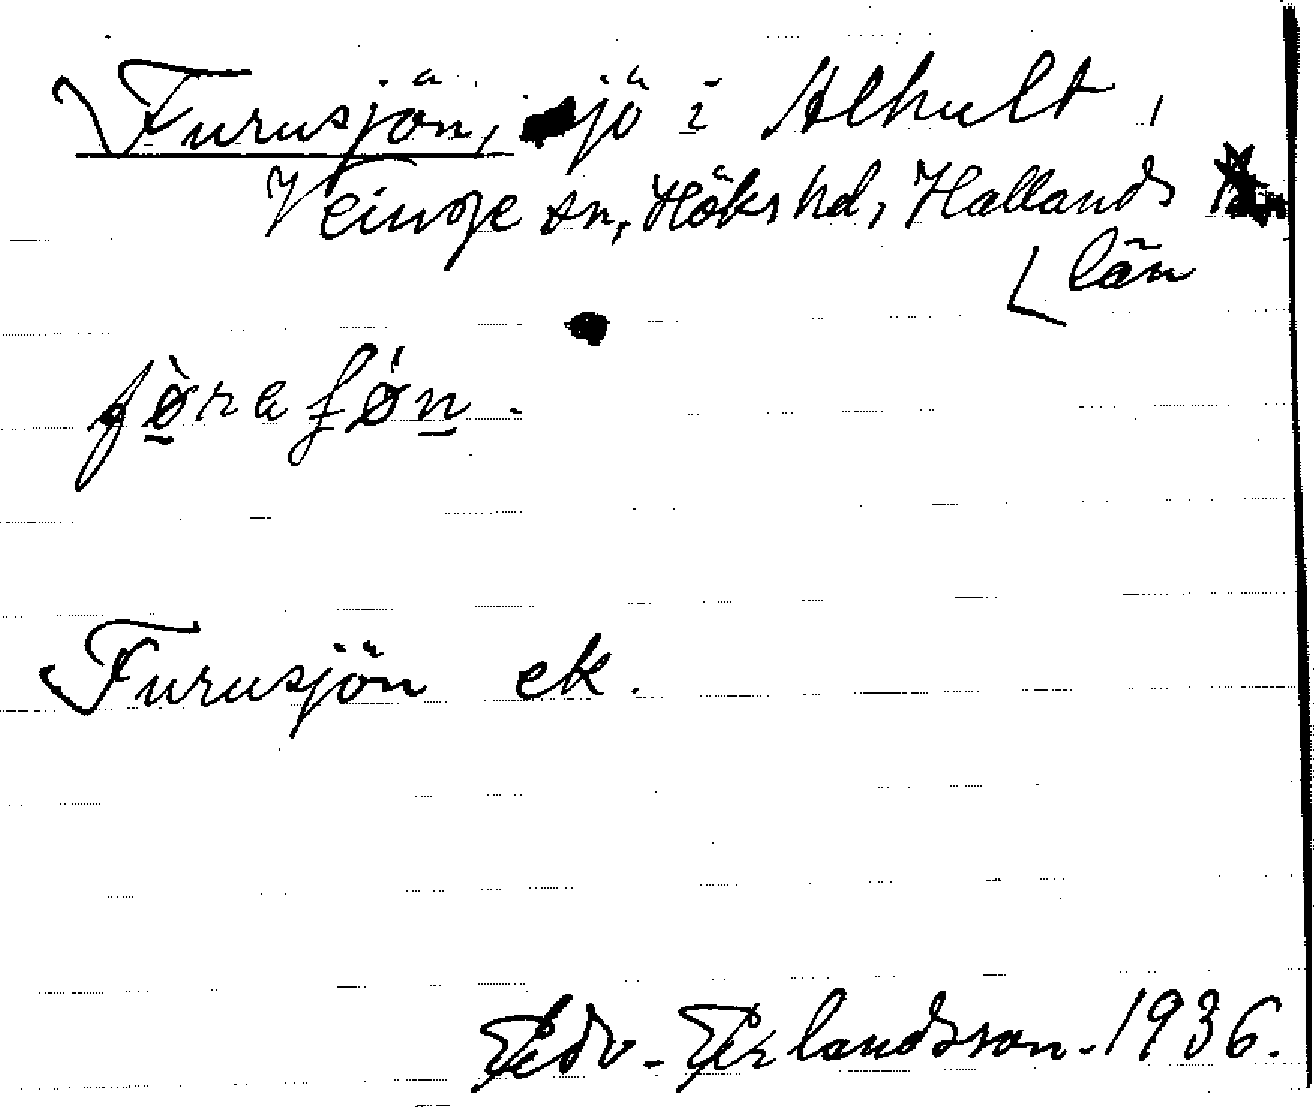 Furusjön, sjö i Alhult,
Veinge sn, Höks hd, Hallands
län
fø̀raʃø̀n.
Furusjön ek.
Edv. Erlandsson. 1936.